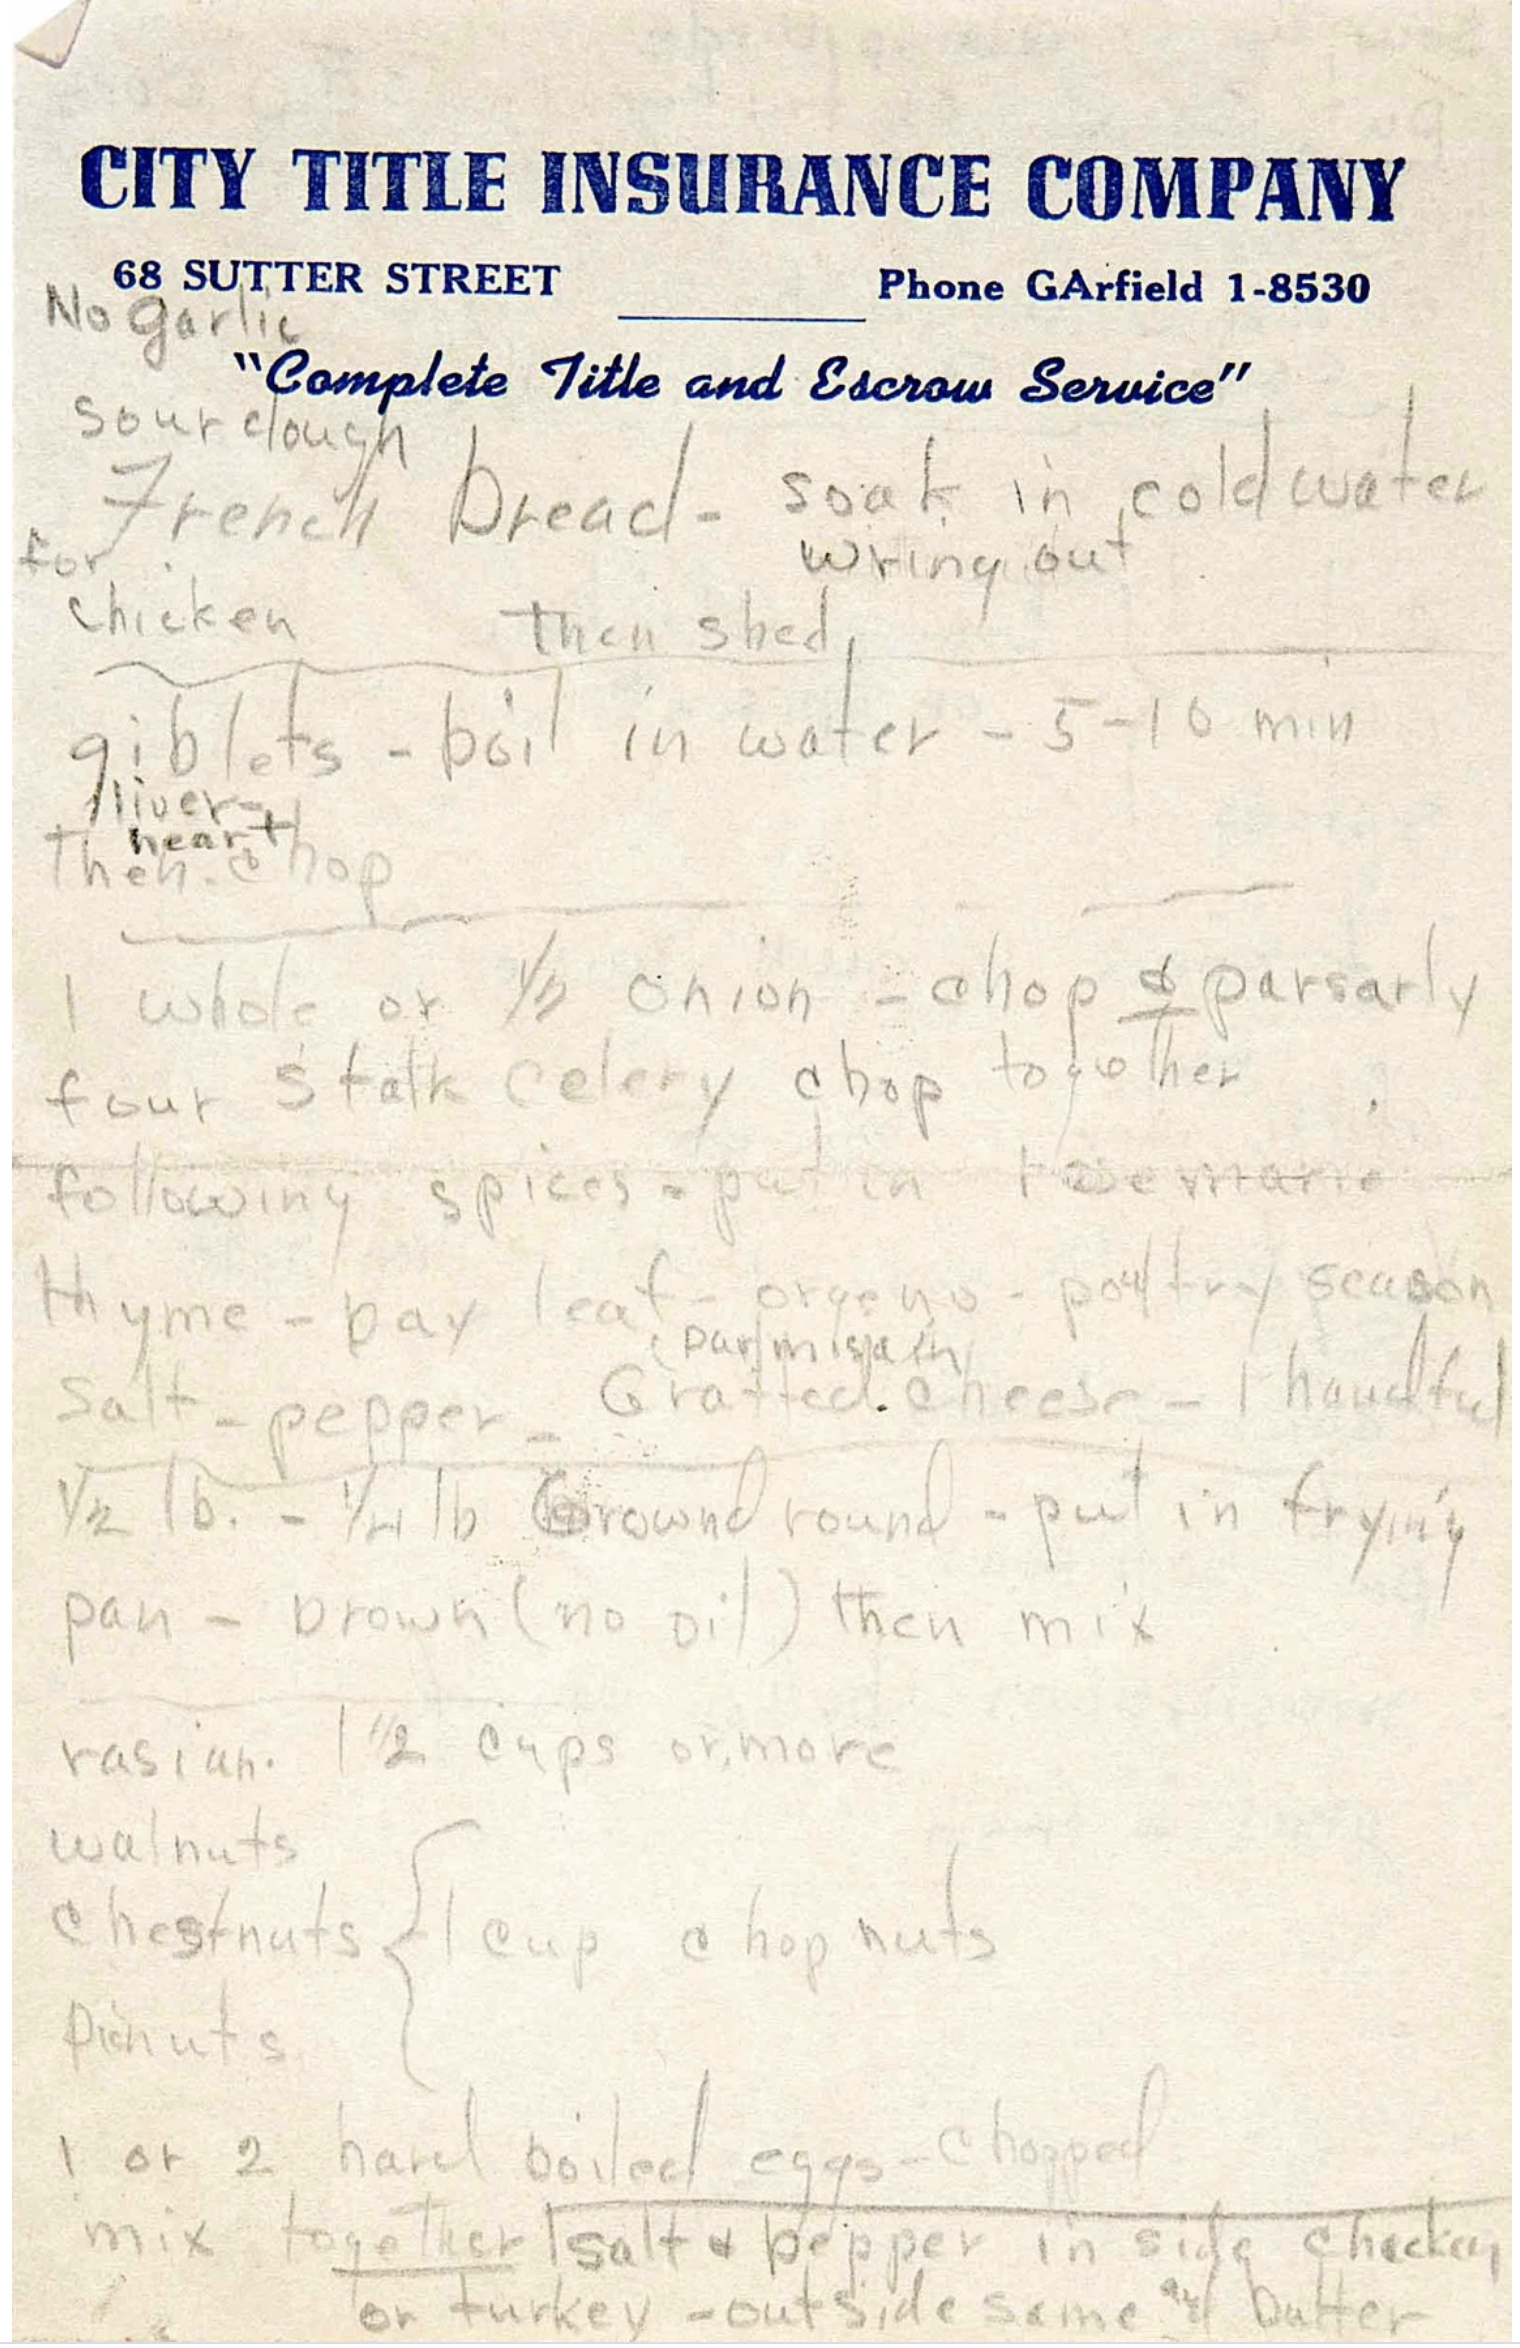 CITY TITLE INSURANCE COMPANY
68 SUTTER STREET Phone GArfield 1-8530
No garlic
"Complete Title and Escrow Service"
sour dough
French bread - soak in cold water
wring out
for
chicken then shed
giblets - boil in water - 5-10 min
liver-
heart
then chop
1 whole or 1/2 onion - chop & parsarly
four stalk celery chop together
following spices - put in rosemarie
thyme - bay leaf - orgeno - poultry season
(Parmisain)
salt - pepper - Gratted cheese - 1 handful
1/2 lb. - 1/4 lb Grownd round - put in frying
pan - brown (no oil) then mix
rasian. 1 1/2 cups or more
walnuts
chestnuts { 1 cup chop nuts
Pinuts
1 or 2 hard boiled eggs - chopped
mix together salt & pepper in side chicken
or turkey - outside same and butter